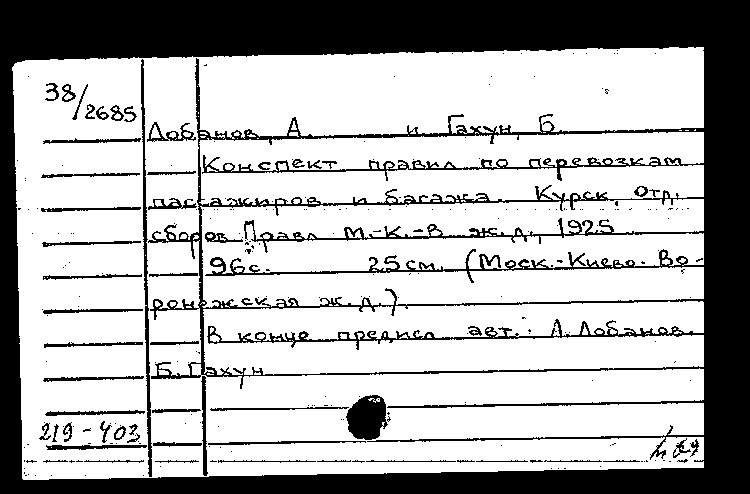 38/2685
Лобанов, А. и Гахун, Б.
Конспект правил по перевозкам
пассажиров и багажа. Курск, Отд.
сборов Правл М.-К.-В ж.д., 1925
96с. 25см. (Моск.-Киево-Во-
ронежская ж.д.).
В конце предисл авт.: А.Лобанов.
Б.Гахун
219-403